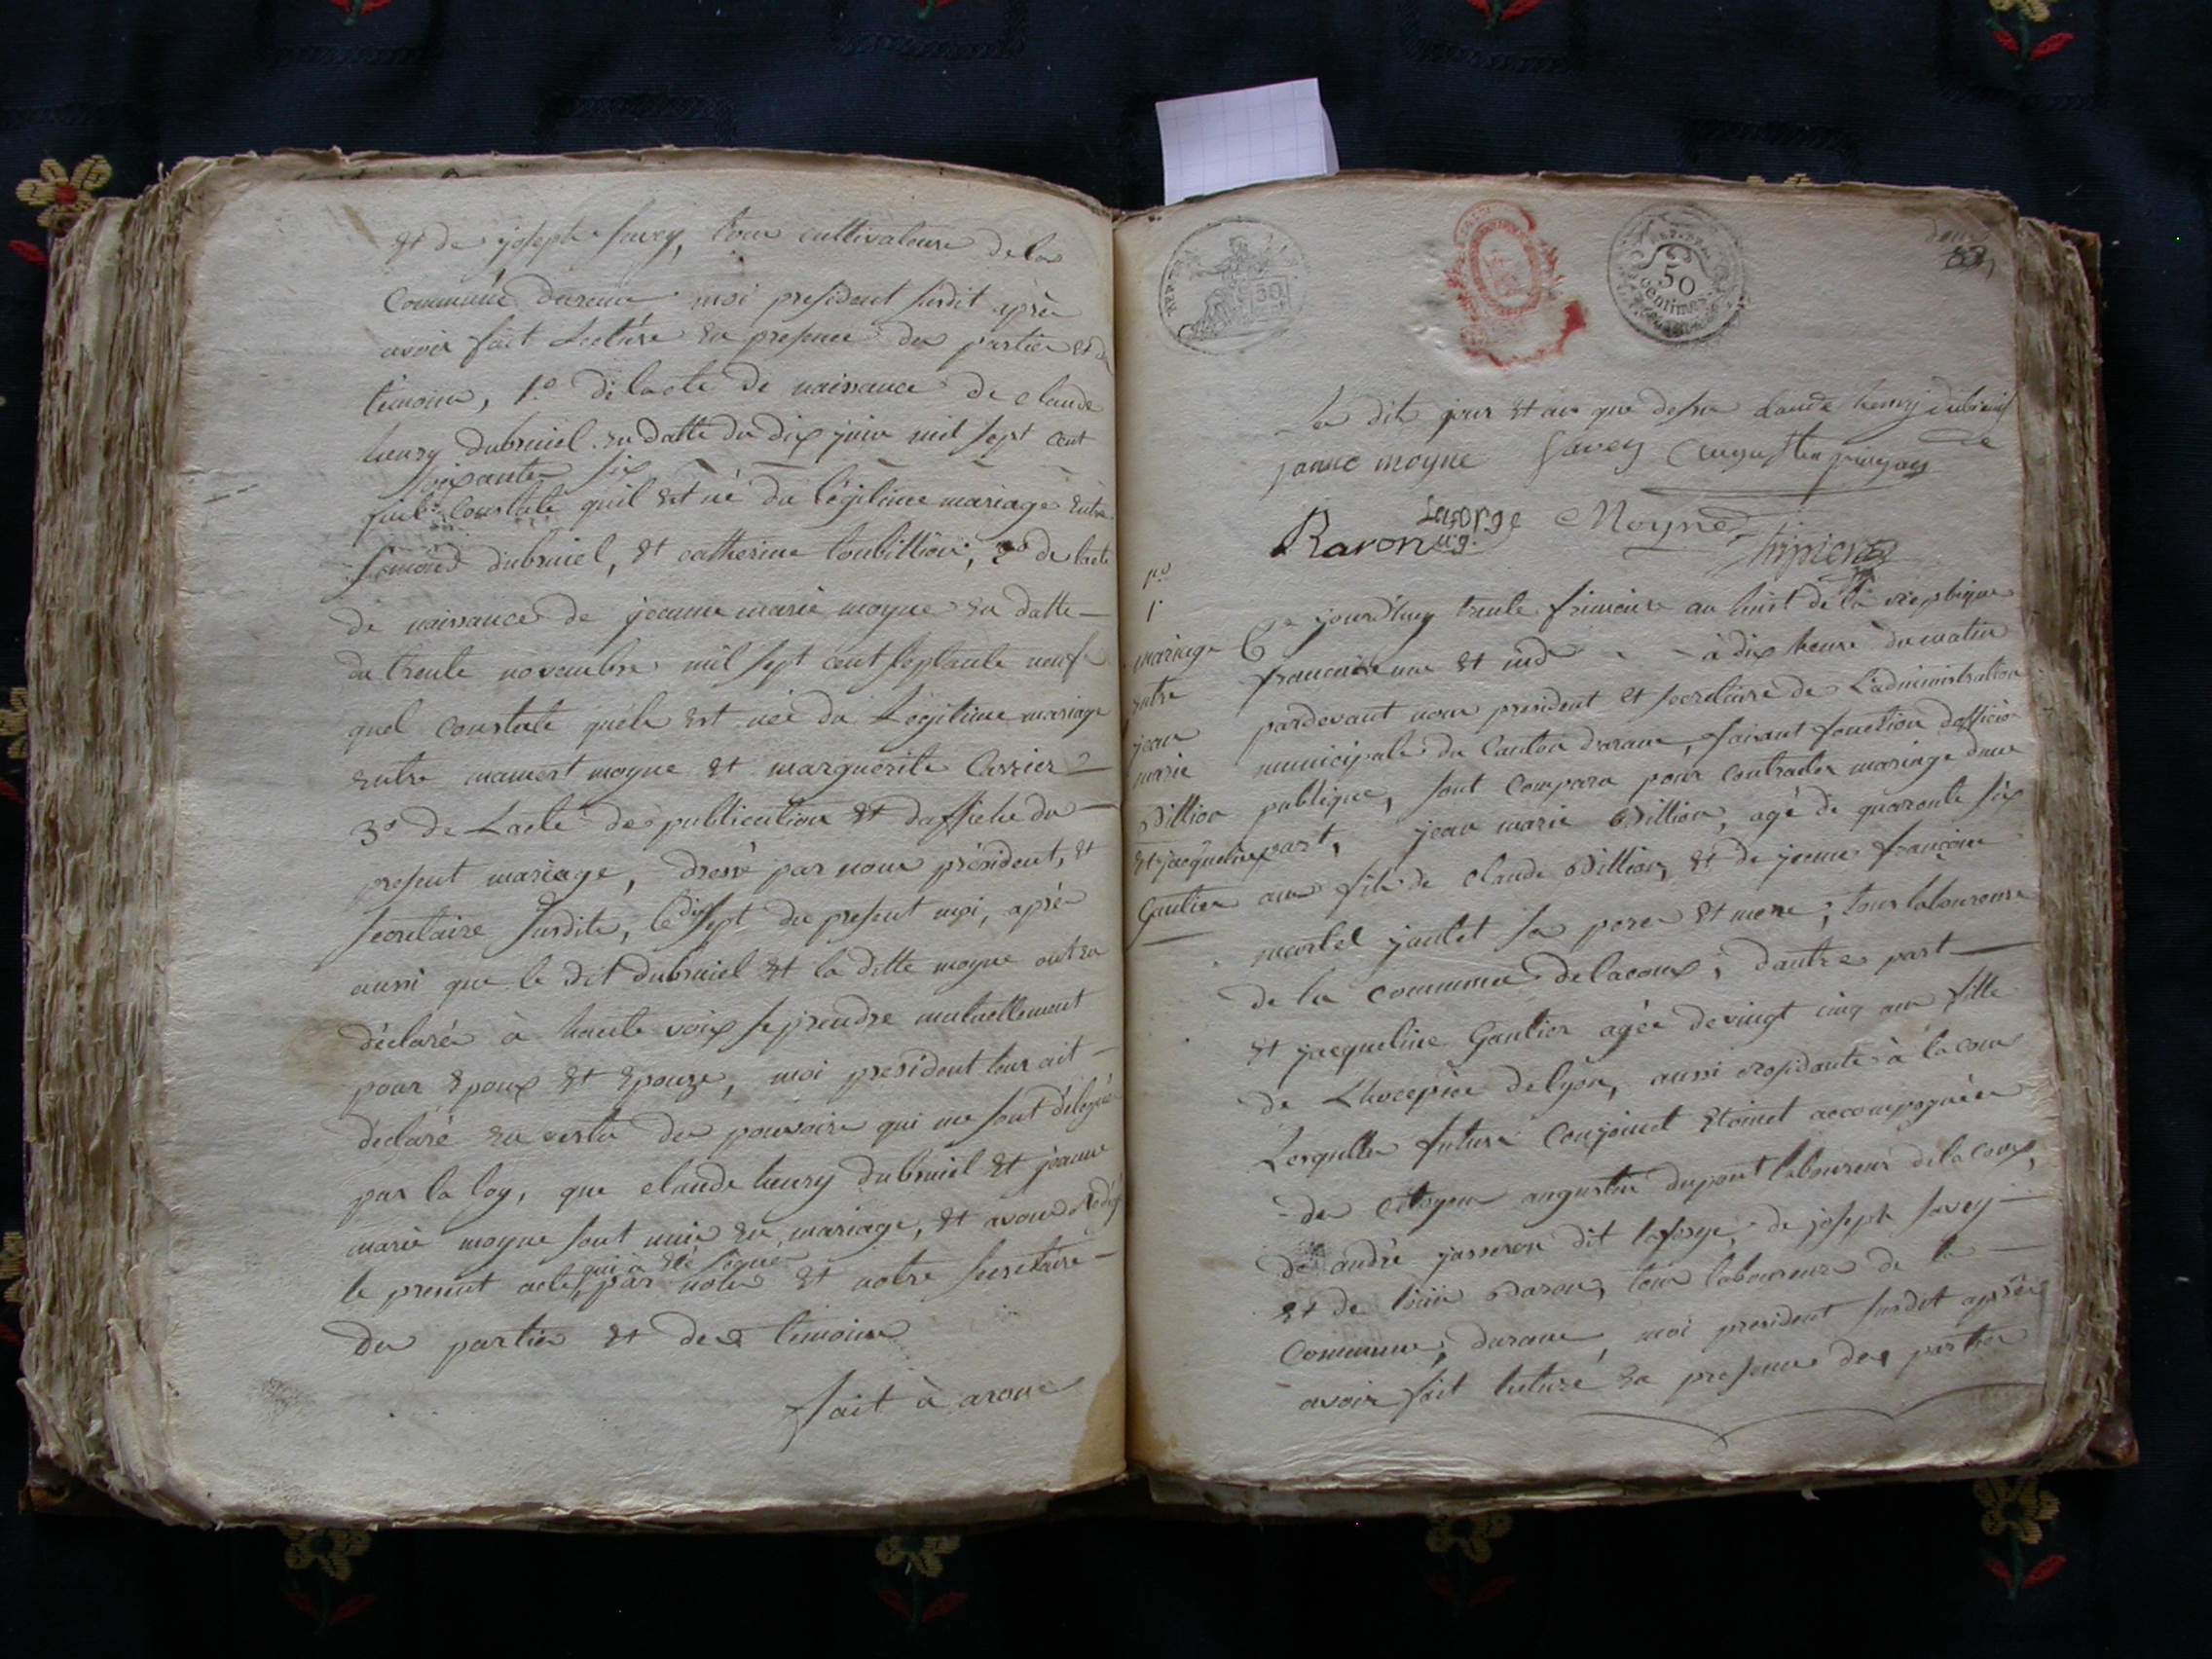 et de joseph savey, tous cultivateurs de la
Commune darane moi president susdit après
avoir fait Lecture en presence des parties et des
témoins, 1.o de lacte de naissance de claude
henry dubruiel en datte du dix juin mil sept cent
soixante six
quel constate quil est né du légitime mariage entre
dubruiel, et catherine 2o de lacte
de naissance de jeanne marie moyne en datte
du trente novembre mil sept cent septante neuf
quel constate quele est née du Legitime mariage
entre mamert moyne et marguerite Carrier
3o de Lacte de publication et daffiche du
present mariage, dressé par nous président, et
secretaire susdits, le dix sept du present moi, après
aussi que le dit dubruiel et la ditte moyne ont eu
déclaré à haute voix se prendre mutuellement
pour Epoux et Epouze, moi president leur ait
déclaré en vertu des pouvoirs qui me sont délégués
par la loy, que claude henry dubruiel et jeanne
marie moyne sont unis en mariage, et avons Rédigé
qui a été signé
le present acte, par nous et notre secretaire
des parties et des témoins
fait à arane
50
50
centimes
83
Les dit jour et an que desus claude henry dubruiel
janne moyne Savey augustin
Baron Laforge Moyne
Ce jourdhuy trente frimaire an huit de la republique
francaise une et ind à dix heures du matin
pardevant nous president et secretaire de Ladministration
municipale du Canton darane, faisant fonction dofficier
publique, sont comparu pour contracter mariage dune
part, jean marie Billion, agé de quarante six
ans fils de claude Billion, et de jeanne françoise
martel jantet ses pere et mere; tous laboureurs
de la commune delacoux; dautre part
et jacqueline Gautier agée de vingt cinq ans fille
de Lhocepice de lyon, aussi residante à lacoux
Lesquelles futurs conjoinct etoinet accompagnées
des citoyens augustin dupont laboureur delacoux,
de andré jasseron dit laforge, de joseph savey
et de louis Baron, tous laboureurs de la
Commune, darane, moi president susdit après
avoir fait lecture en presence des parties
1o
1
mariage
entre
jean
marie
Billion
et jacqueline
Gautier